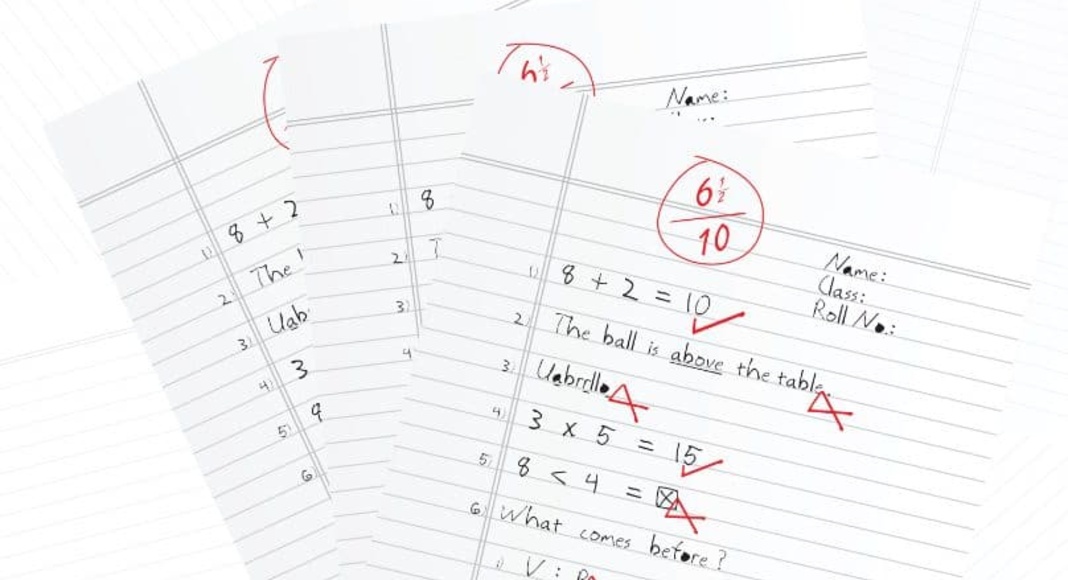 8 + 2
The
Uab
3
9
1)
2)
3)
4)
5)
6)
1)
2)
3)
4
8
T
½
Name:
6½
10
Name:
Class:
Roll No.:
1) 8 + 2 = 10
2) The ball is above the table.
3) Uabrella
4) 3 x 5 = 15
5) 8 < 4 = ☒
6) What comes before?
i) V :